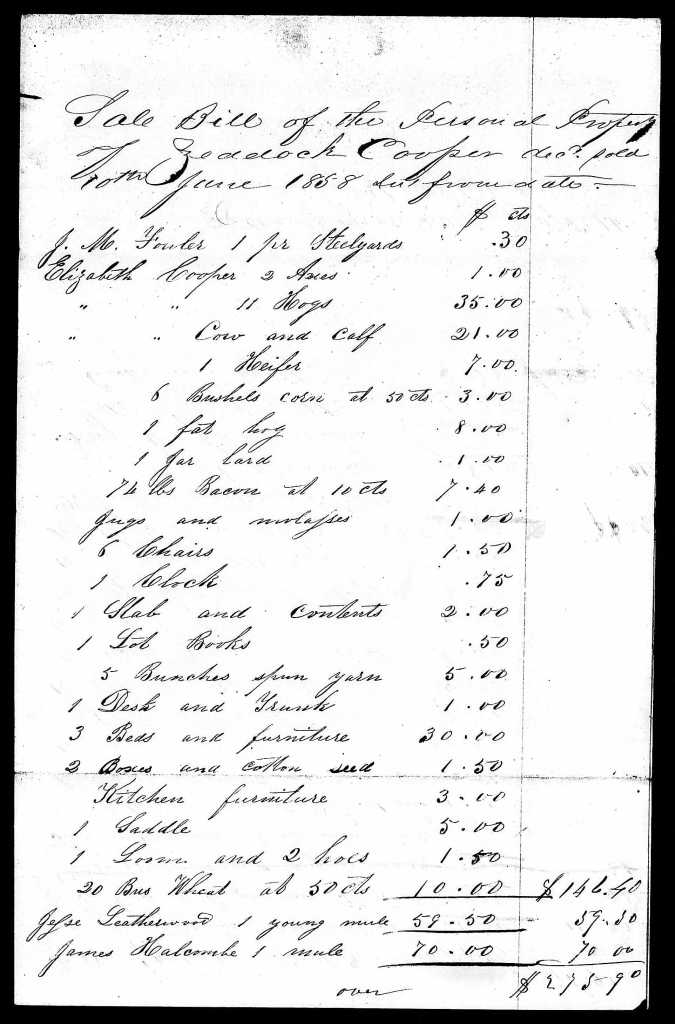 Sale Bill of the Personal Property
of Zeddock Cooper decd. sold
10th June 1858 Int from date —
$ cts
J. M. Fowler 1 pr Steelyards .30
Elizabeth Cooper 2 Axes 1.00
" " 11 Hogs 35.00
" " Cow and calf 21.00
1 Heifer 7.00
6 Bushels corn at 50 cts 3.00
1 fat hog 8.00
1 Jar lard 1.00
74 lbs Bacon at 10 cts 7.40
Jugs and molasses 1.00
6 Chairs 1.50
1 Clock .75
1 Slab and contents 2.00
1 Lot Books .50
5 Bunches spun yarn 5.00
1 Desk and Trunk 1.00
3 Beds and furniture 30.00
2 Boxes and cotton seed 1.50
Kitchen furniture 3.00
1 Saddle 5.00
1 Loom and 2 hoes 1.50
20 Bus Wheat at 50 cts 10.00 $146.40
Jesse Leatherwood 1 young mule 59.50 - 59.50
James Halcombe 1 mule 70.00 70 00
over $275 90